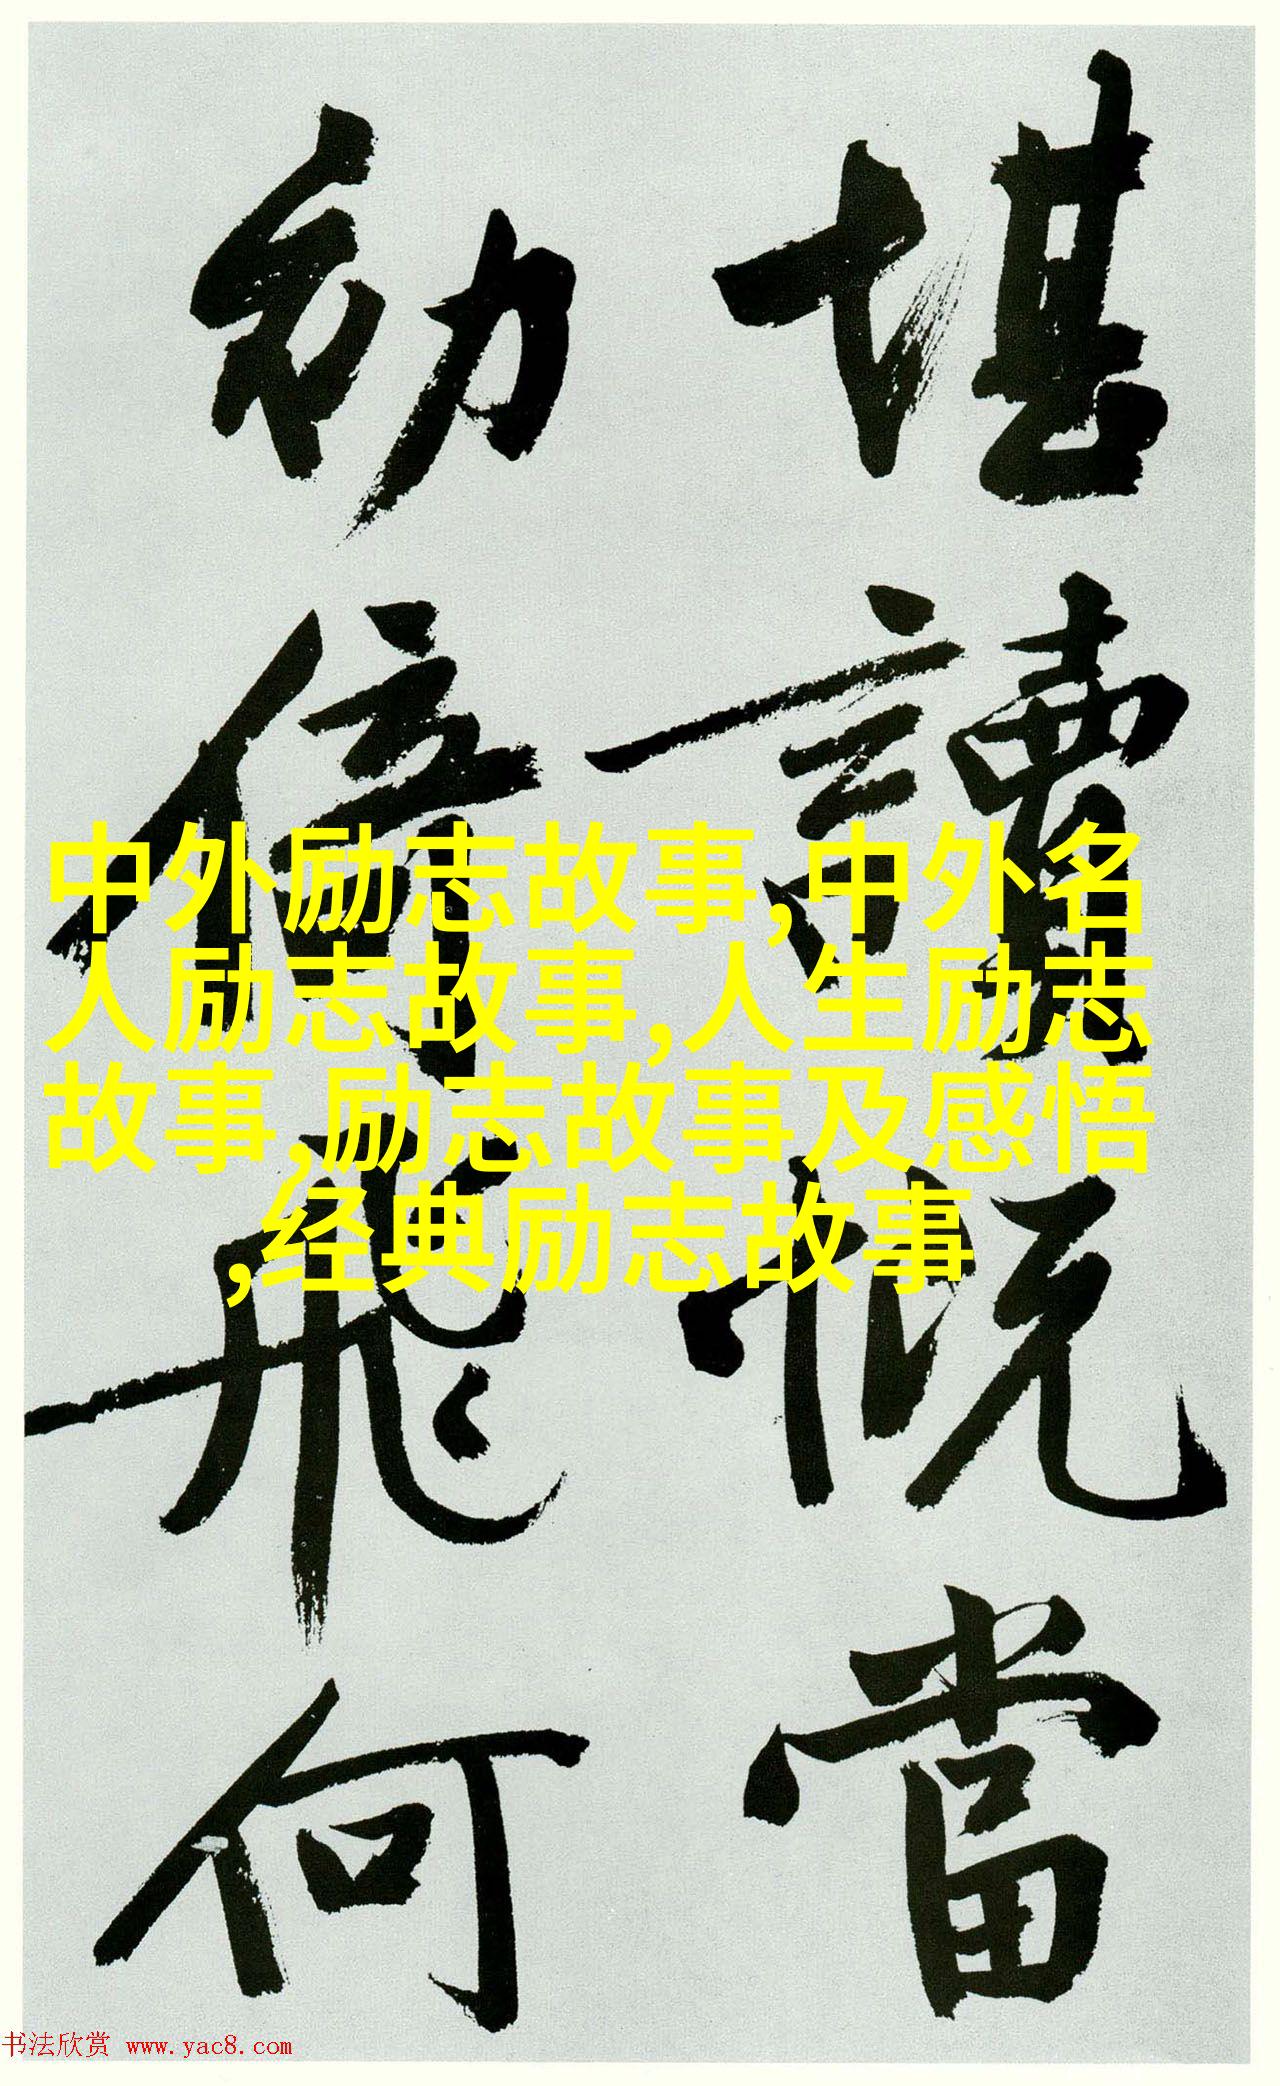 堪讀慨當
幼倚飛何
中外励志故事,中外名
人励志故事,人生励志
故事,励志故事及感悟
,经典励志故事
书法欣赏 www.yac8.com